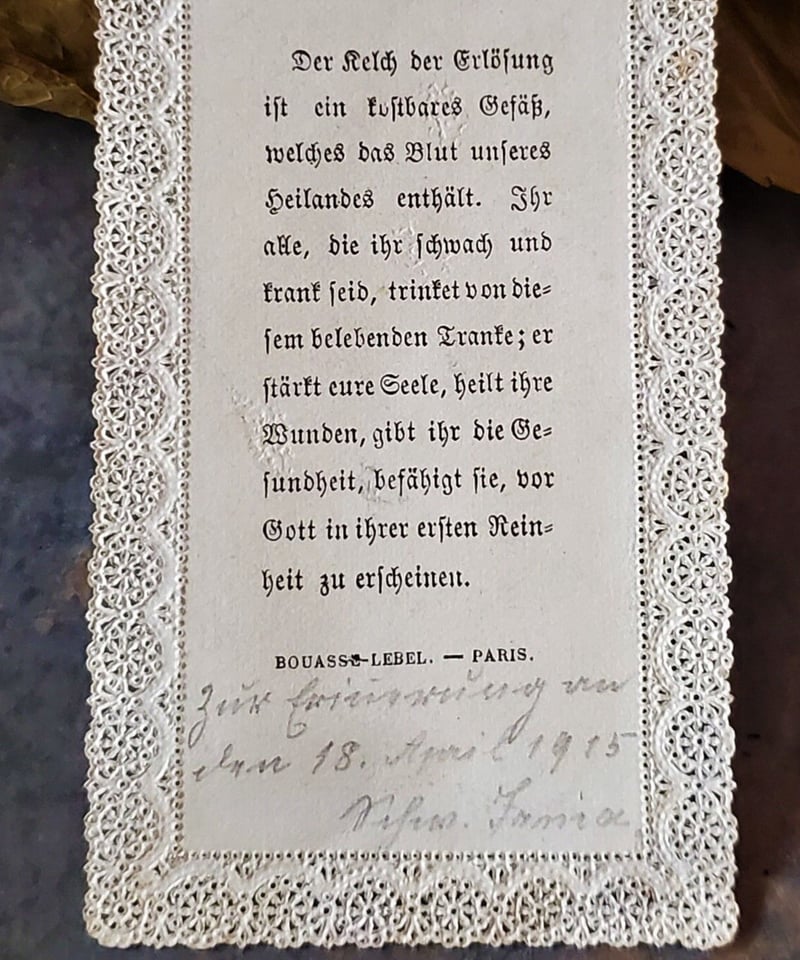 Der Kelch der Erlösung
ist ein kostbares Gefäß,
welches das Blut unseres
Heilandes enthält. Ihr
alle, die ihr schwach und
krank seid, trinket von die=
sem belebenden Tranke; er
stärkt eure Seele, heilt ihre
Wunden, gibt ihr die Ge=
sundheit, befähigt sie, vor
Gott in ihrer ersten Rein=
heit zu erscheinen.
BOUASSE-LEBEL. — PARIS.
Zur Erinnerung an
den 18. April 1915
Schw.